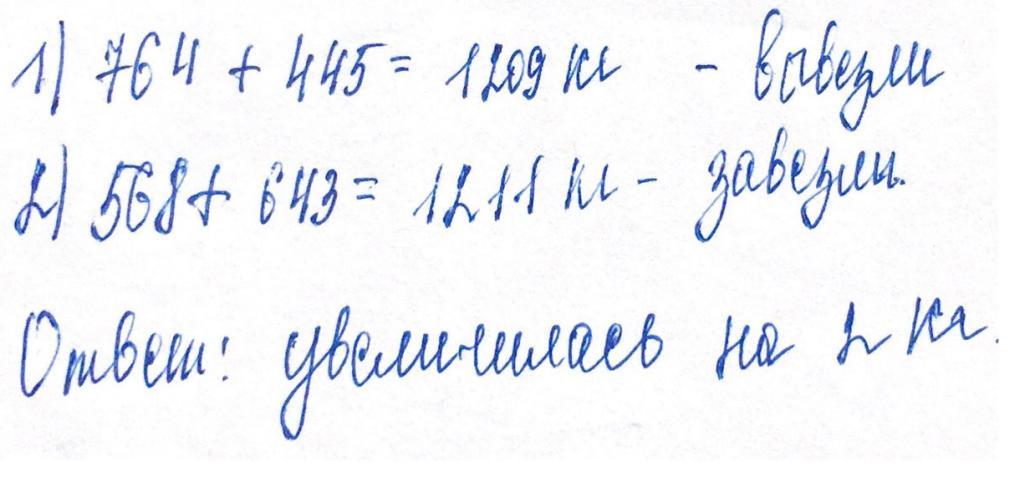 1) 764 + 445 = 1209 кг - вывезли
2) 568 + 643 = 1211 кг - завезли.
Ответ: увеличилась на 2 кг.